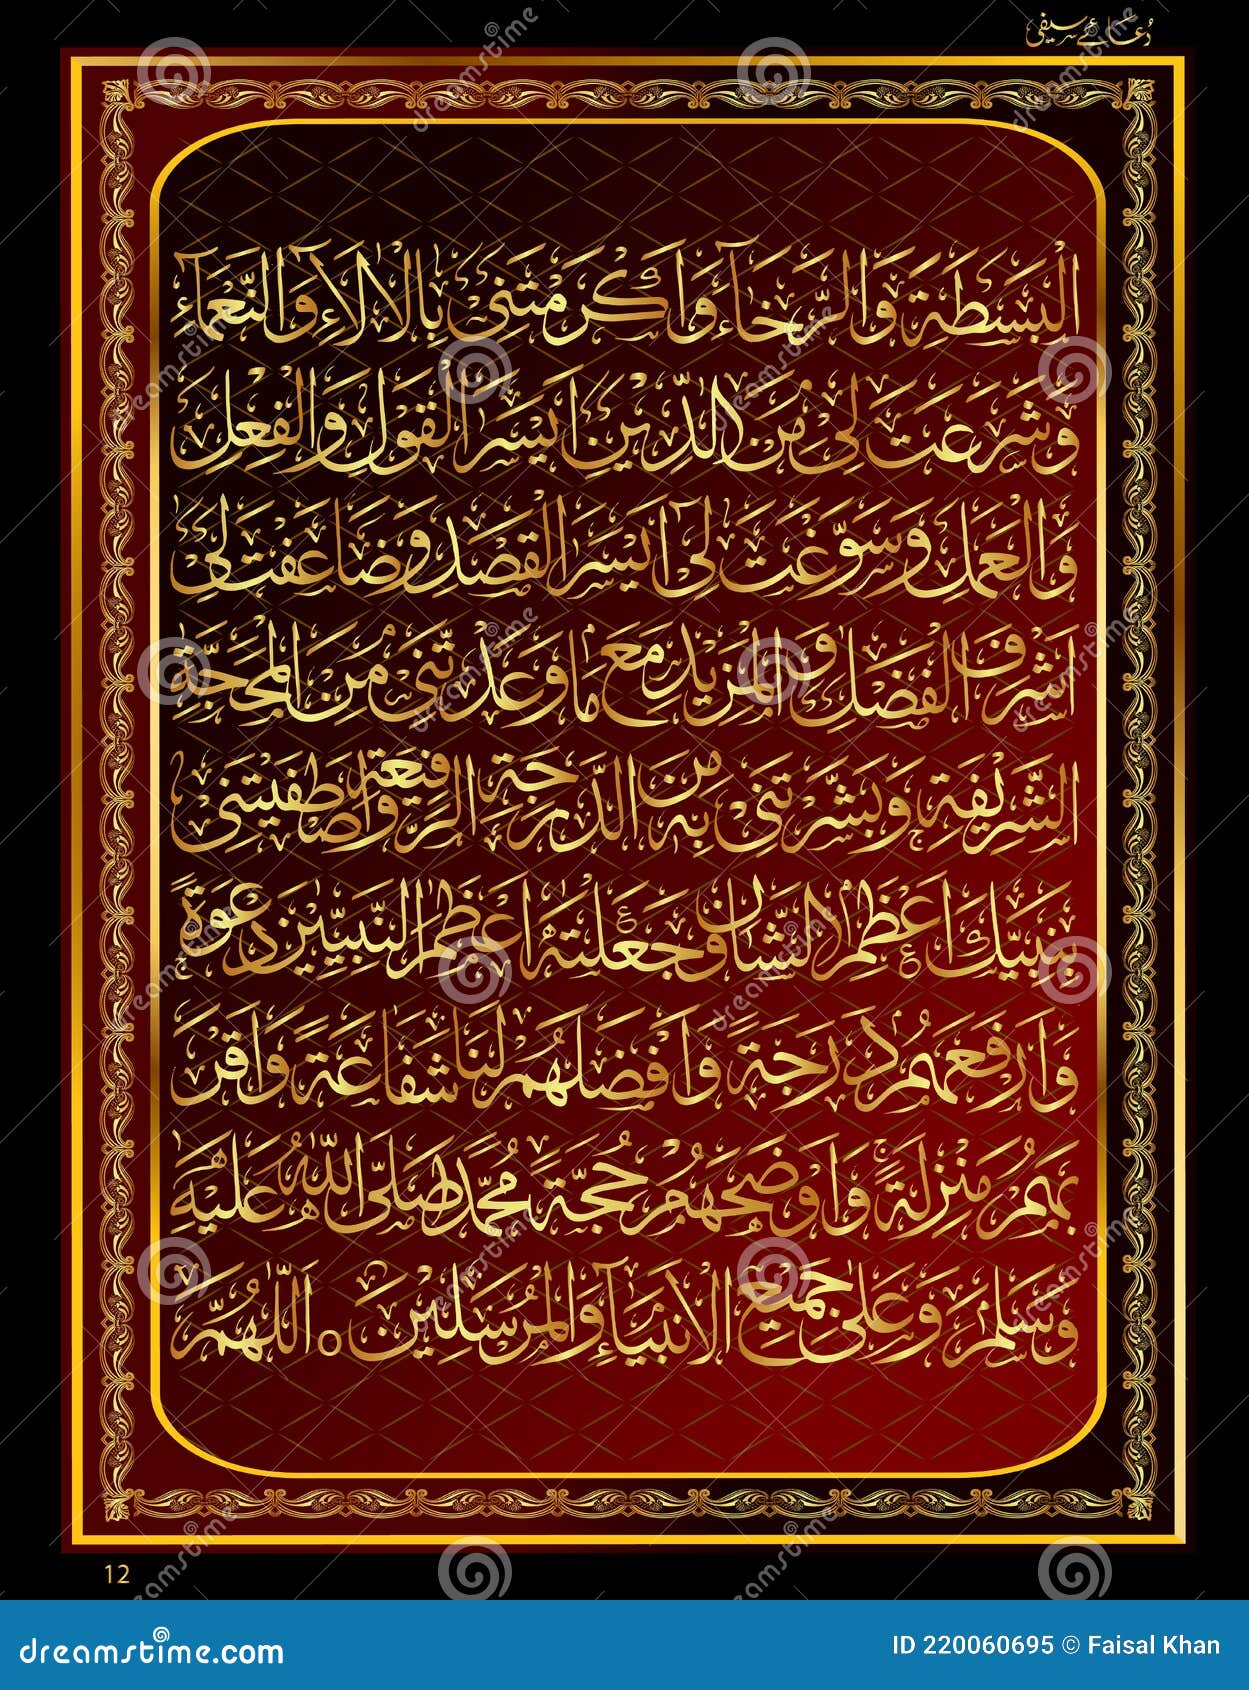 دُعائے سیفی
الْبَسْطَةِ وَالرَّخَآءِ وَاَكْرَمْتَنِیْ بِالْاٰلَآءِ وَالنَّعْمَآءِ
وَشَرَعْتَ لِیْ مِنَ الدِّیْنِ اَیْسَرَ الْقَوْلِ وَالْفِعْلِ
وَالْعَمَلِ وَسَوَّغْتَ لِیْٓ اَیْسَرَ الْقَصْدِ وَضَاعَفْتَ لِیْ
اَشْرَفَ الْفَضْلِ وَالْمَزِیْدِ مَعَ مَا وَعَدْتَّنِیْ مِنَ الْمَحَجَّةِ
الشَّرِیْفَةِ وَبَشَّرْتَنِیْ بِهٖ مِنَ الدَّرَجَةِ الرَّفِیْعَةِ وَاصْطَفَیْتَنِیْ
بِنَبِیِّكَ اَعْظَمِ الشَّانِ وَجَعَلْتَهٗ اَعْظَمَ النَّبِیِّیْنَ دَعْوَةً
وَاَرْفَعَهُمْ دَرَجَةً وَاَفْضَلَهُمْ لَنَا شَفَاعَةً وَاَقْرَ
بَهُمْ مَنْزِلَةً وَاَوْضَحَهُمْ حُجَّةً مُحَمَّدٍ صَلَّی اللّٰهُ عَلَیْهِ
وَسَلَّمَ وَعَلٰی جَمِیْعِ الْاَنْبِیَآءِ وَالْمُرْسَلِیْنَ ○ اَللّٰهُمَّ
12
dreamstime.com
ID 220060695 © Faisal Khan